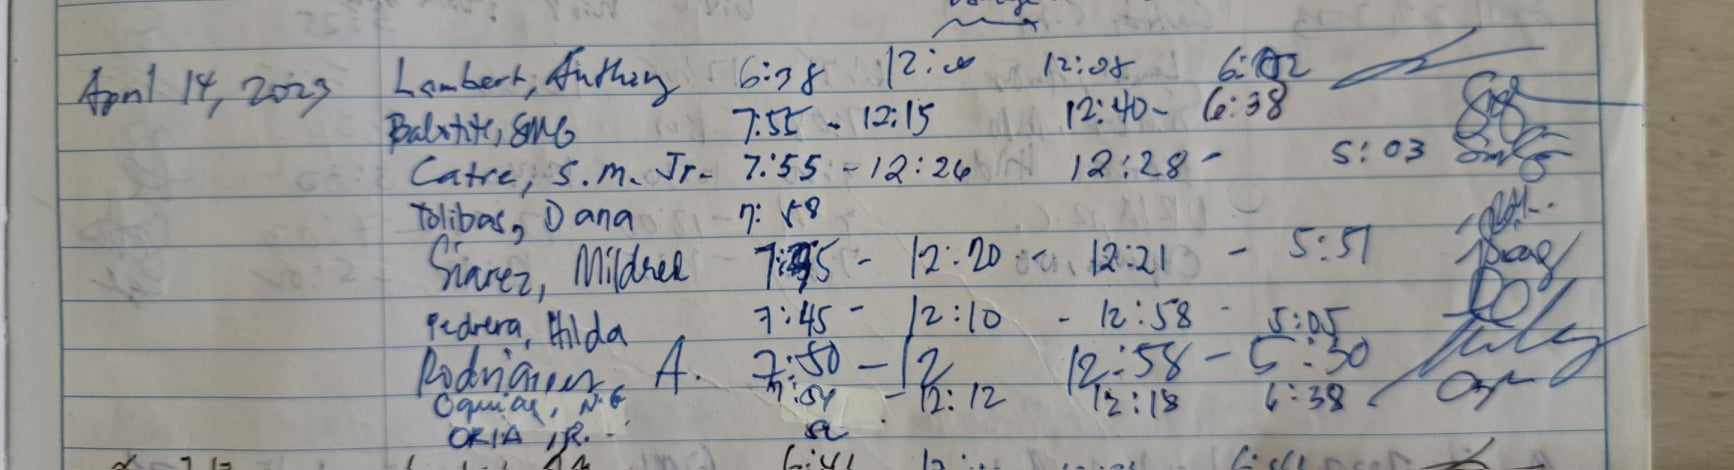 April 14, 2023 Lambert, Anthony 6:38 12:00 12:08 6:02
Balatite, SMG 7:55 - 12:15 12:40 - 6:38
Catre, S.M. Jr. 7:55 - 12:26 12:28 - 5:03
Tolibas, Dana 7:58
Suarez, Mildred 12:20 - 12:21 - 5:51
Pedrera, Hilda 7:45 - 12:10 - 12:58 - 5:05
Rodriguez A. 7:50 - 12 12:58 - 5:30
N.G 7:54 - 12:12 12:18 6:38
ORIA, JR. - SL
6:41